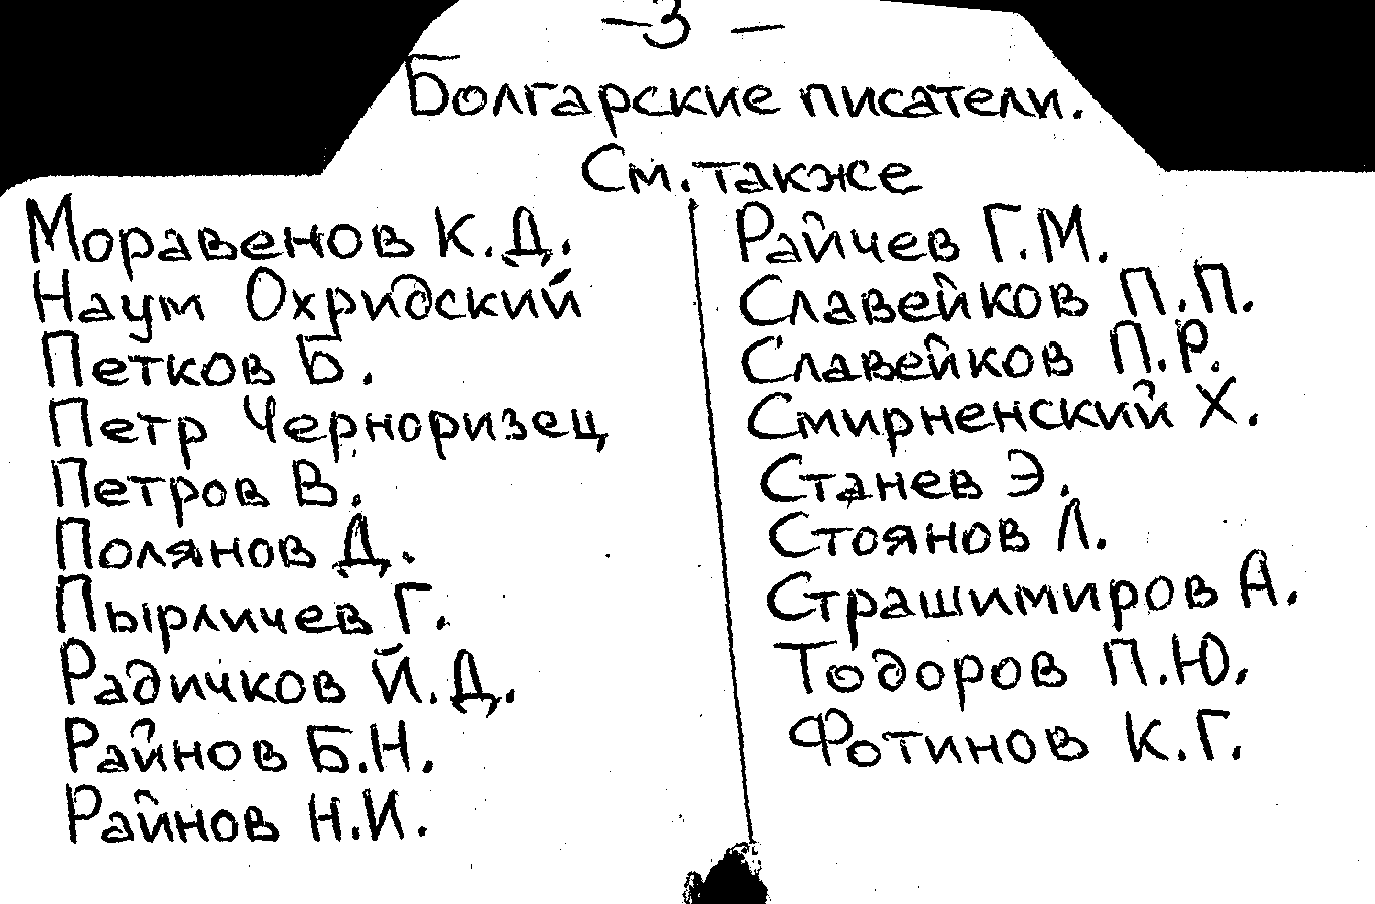 — 3 —
Болгарские писатели.
См. также
Моравенов К. Д.
Наум Охридский
Петков Б.
Петр Черноризец
Петров В.
Полянов Д.
Пырличев Г.
Радичков Й. Д.
Райнов Б. Н.
Райнов Н. И.
Райчев Г. М.
Славейков П. П.
Славейков П. Р.
Смирненский Х.
Станев Э.
Стоянов Л.
Страшимиров А.
Тодоров П. Ю.
Фотинов К. Г.